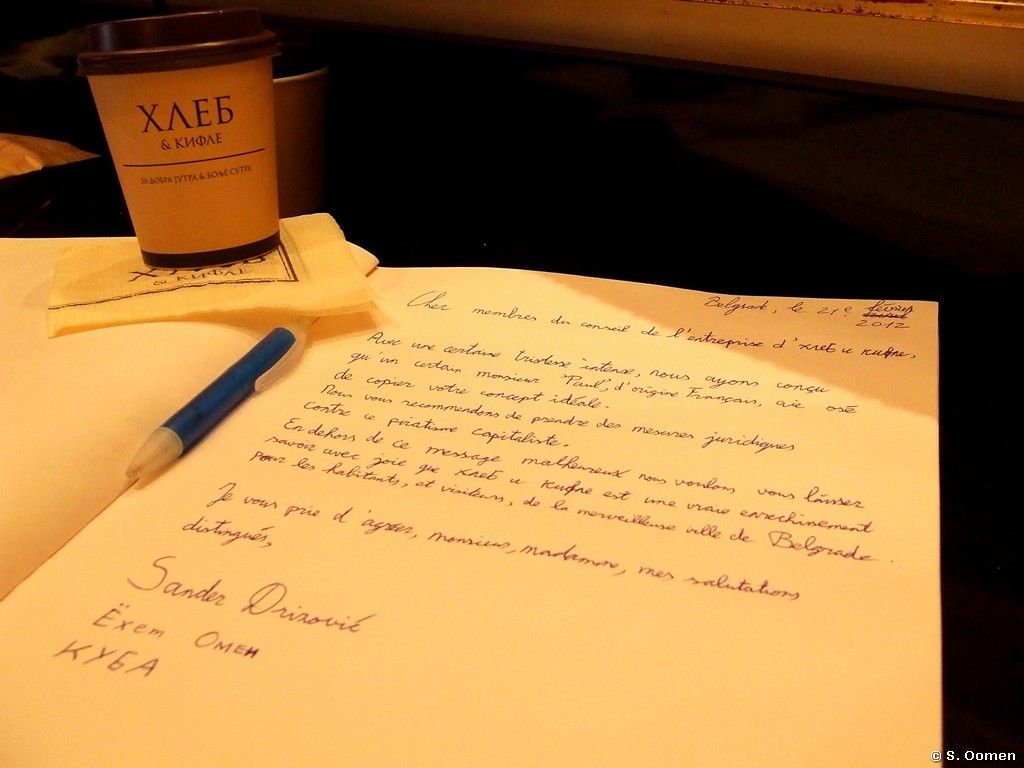 ХЛЕБ
& КИФЛЕ
ЗА ДОБРА ЈУТРА & БОЉЕ СУТРА
& КИФЛЕ
Belgrad, le 21e février
2012
Cher membres du conseil de l'entreprise d'хлеб и кифле,
Avec une certaine tristesse intense, nous ayons conçu
qu'un certain monsieur 'Paul', d'origine Français, aie osé
de copier votre concept idéale.
Nous vous recommendons de prendre des mesures juridiques
contre ce piratisme capitaliste.
En dehors de ce message malheureux nous voulons vous laisser
savoir avec joie que хлеб и кифле est une vraie enrechinement
pour les habitants, et visiteurs, de la merveilleuse ville de Belgrade.
Je vous prie d'agréer, monsieur, madamme, mes salutations
distingués,
Sander Drizović
Ëxem Омен
КУБА
© S. Oomen